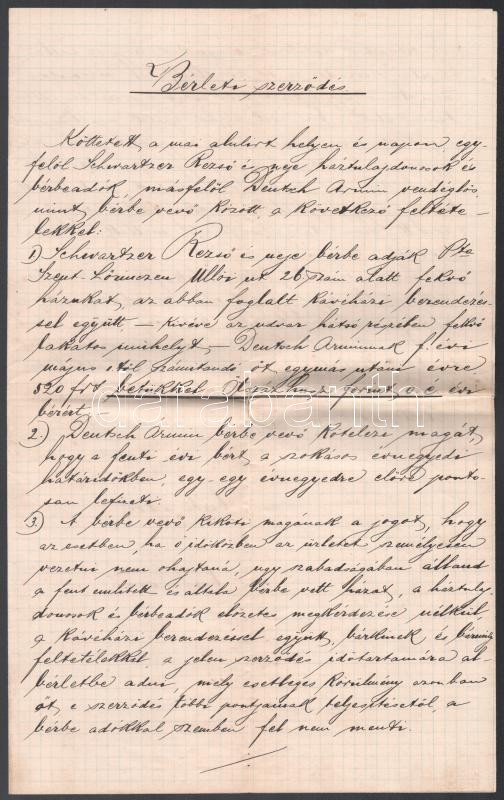 Bérleti szerződés.
Köttetett, a mai alulirt helyen és napon, egy-
felől Schwartzer Rezső és neje háztulajdonosok és
bérbeadók, másfelől Deutsch Armin vendéglős
mint bérbe vevő között, a következő feltéte-
lekkel:
1) Schwartzer Rezső és neje bérbe adják Pta
Szent Lőrinczen Üllői ut 26. szám alatt fekvő
házukat, az abban foglalt kávéházi berendezés-
sel együtt – kivéve az udvar hátsó részében fekvő
lakatos műhelyt – Deutsch Arminnak f. évi
majus 1től számitandó öt egymás után évre
520 frt betükkel Ötszázhusz forint o. é. évi
bérért.
2.) Deutsch Armin bérbe vevő kötelezi magát,
hogy a fenti évi bért a szokásos évnegyedi
határidőkben, egy-egy évnegyedre előre ponto-
san lefizeti.
3.) A bérbe vevő kiköti magának a jogot, hogy
az esetben, ha ő időközben az üzletet személyesen
vezetni nem ohajtaná, ugy szabadságában álland
a fent emlitett és általa bérbe vett házat, a háztulaj-
donosok és bérbeadók előzetes megkérdezése nélkül,
a kávéházi berendezéssel együtt, bárkinek és bármily
feltételekkel, a jelen szerződés időtartamára al-
bérletbe adni, mely esetleges körülmény azonban
őt e szerződés többi pontjainak teljesitésétől, a
bérbe adókkal szemben fel nem menti.
darabanth